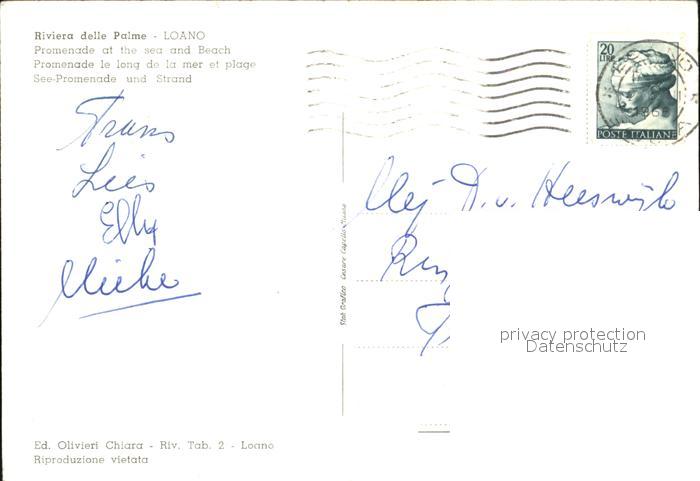 Riviera delle Palme - LOANO
Promenade at the sea and Beach
Promenade le long de la mer et plage
See-Promenade und Strand
20
LIRE
POSTE ITALIANE
Frans
Lies
Elly
Mej. A. v. Heeswijk
Stab. Grafico Cesare Capello Milano
privacy protection
Datenschutz
Ed. Olivieri Chiara - Riv. Tab. 2 - Loano
Riproduzione vietata